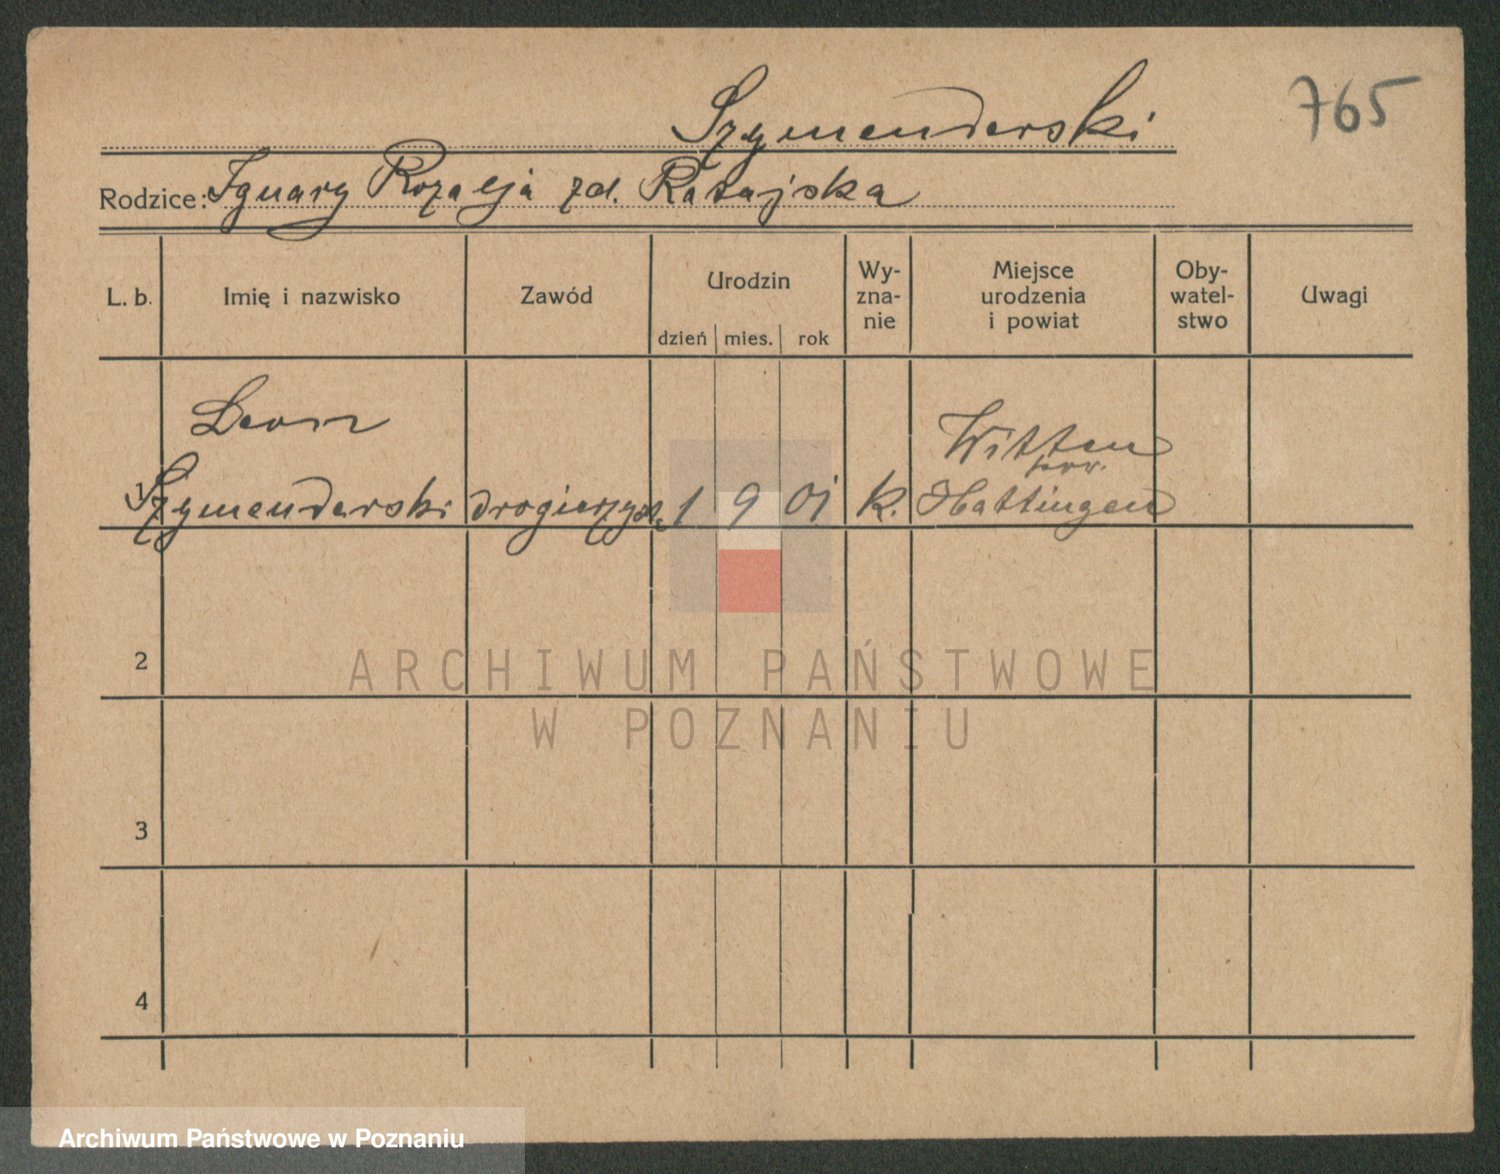 Szymenderski
765
Rodzice: Ignacy Rozalja zd. Ratajska
L. b. Imię i nazwisko Zawód Urodzin dzień mies. rok Wy-zna-nie Miejsce urodzenia i powiat Oby-watel-stwo Uwagi
Leon Witten
pow.
1 Szymenderski drogierzysta 1 9 01 k. Hattingen
2
ARCHIWUM PAŃSTWOWE
W POZNANIU
3
4
Archiwum Państwowe w Poznaniu